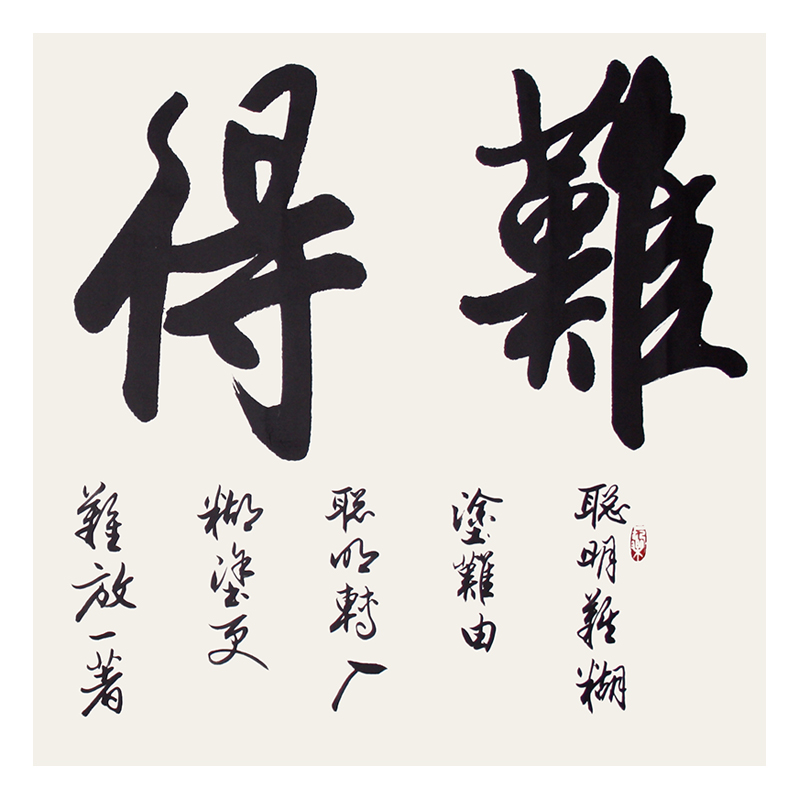 難得
聪明難糊
塗難由
聪明轉入
糊塗更
難放一著